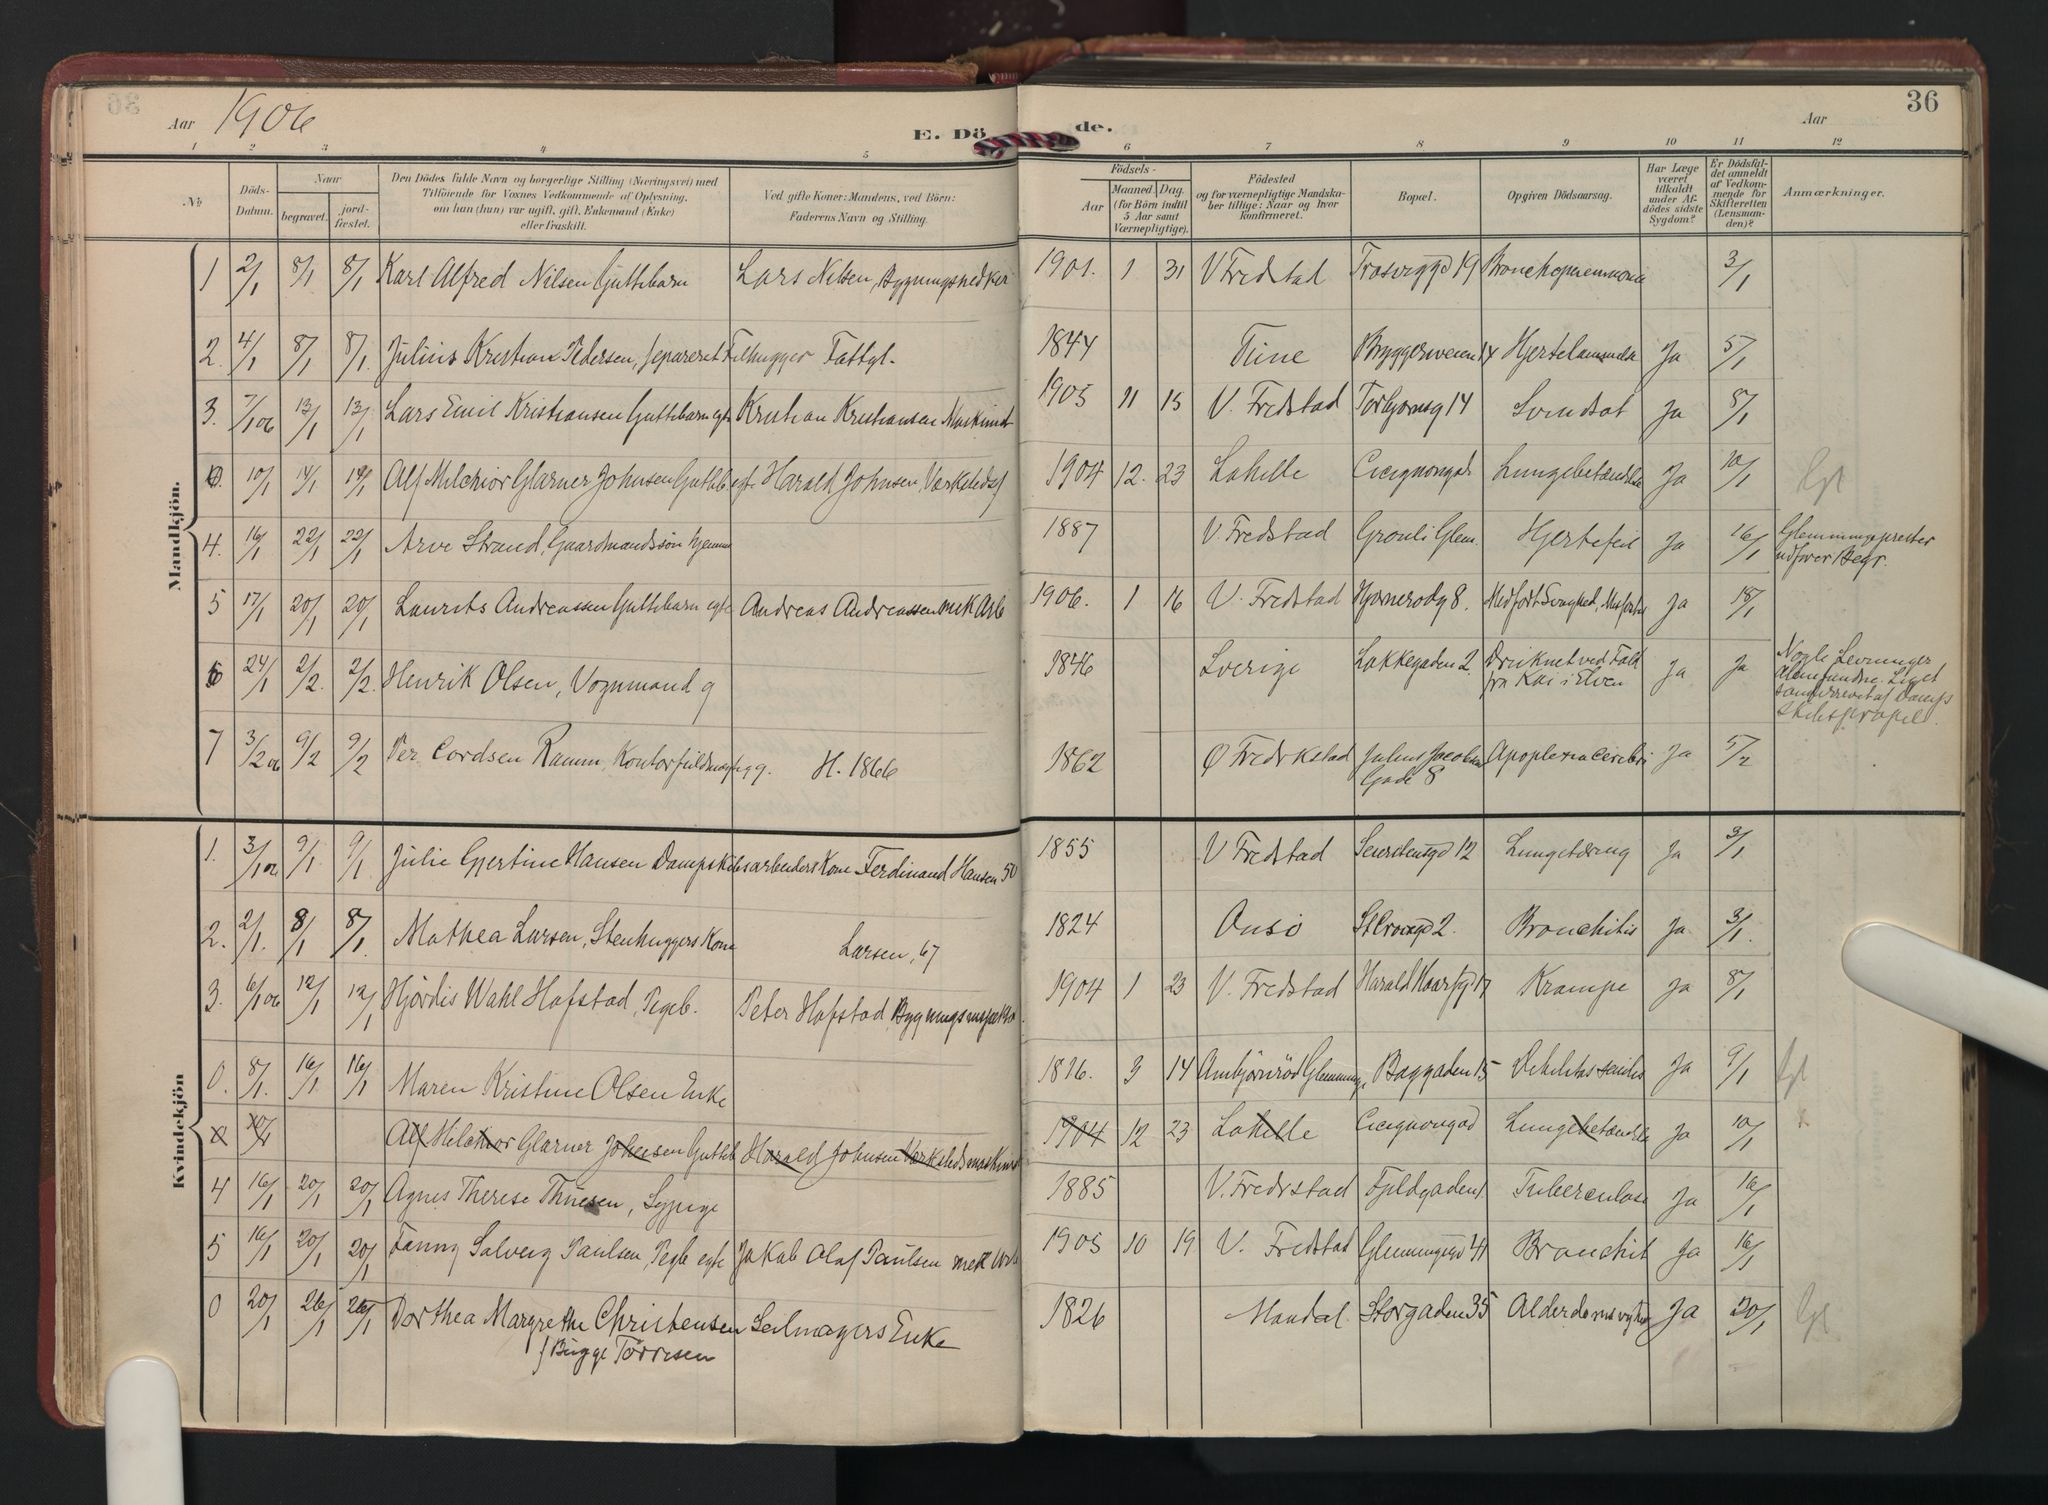 36
Aar 1906
E. Dö
de.
Aar
1 2 3 4 5 6 7 8 9 10 11 12
No
Döds-Datum.
Naar
begravet.
jord-fæstet.
Den Dödes fulde Navn og borgerlige Stilling (Næringsvei) med
Tilföiende for Voxnes Vedkommende af Oplysning,
om han (hun) var ugift, gift, Enkemand (Enke)
eller fraskilt.
Ved gifte Koner: Mandens, ved Börn:
Faderens Navn og Stilling.
Födsels-
Aar
Maaned. Dag.
(for Börn indtil
5 Aar samt
Værnepligtige).
Födested
og for værnepligtige Mandska-
ber tillige: Naar og hvor
konfirmeret.
Bopæl.
Opgiven Dödsaarsag.
Har Læge
været
tilkaldt
under Af-
dödes sidste
Sygdom?
Er Dödsfal-
det anmeldt
af Vedkom-
mende for
Skifteretten
(Lensman-
den)?
Anmærkninger.
Mandkjön.
1 2/1 8/1 8/1 Karl Alfred Nilsen Guttebarn Lars Nilsen, 1901. 1 31 V Fredstad Trosviggd 19 Bronchopneumonia 3/1
2. 4/1 8/1 8/1 Julius Kristian Pedersen, separeret Fattgl. 1844 Tune Bryggeriveien 14 Ja 5/1
3. 7/1 06 13/1 13/1 Lars Emil Kristiansen Guttebarn egte Kristian Kristiansen 1905 11 15 V. Fredstad Torbjornsg 14 Svindsot Ja 8/1
0. 10/1 14/1 14/1 Alf Milchior Glarner Johnsen Gutteb egt. Harald Johnsen, 1904 12. 23 Cicignongd. Lungebetændelse Ja 10/1
4. 16/1 22/1 22/1 Arve Strand, Gaardmandssøn hjemme 1887 V. Fredstad Grønli Glem. Hjertefeil Ja 16/1 Glemmingprester
udfører Begr.
5 17/1 20/1 20/1 Laurits Andreassen Guttebarn egte Andreas Andreassen mek Arb 1906. 1 16 V. Fredstad 8. Medfødt Svaghed, Ja 18/1
6 24/1 2/2. 2/2. Henrik Olsen, Vognmand g 1846 Sverige Løkkegaden 2. Druknet ved Fald
fra Kai i Elven Ja Ja Nogle Levninger
7 3/2 06 9/2 9/2 Per Cordsen Ramm, Kontorfuldmægtigg. H. 1866 1862 Ø Fredrkstad Julius Jacobsen
Gade 8 Apoplexia cerebri Ja 5/2
Kvindekjön
1. 3/1 06 9/1. 9/1. Julie Gjertine Hansen Dampskibsarbeiders Kone Ferdinand Hansen 50 1855 V Fredstad 12 Lungetæring Ja 3/1.
2. 2/1. 8/1 8/1 Mathea Larsen, Stenhuggers Kone Larsen, 67 1824 Onsø 2. Bronchitis Ja 3/1.
3. 6/1 06 12/1 12/1 Hjørdis Wahl Hofstad, Pigeb. Peter Hofstad, 1904 1 23 V. Fredstad Harald Haarfg 17 Krampe Ja 8/1
0. 8/1. 16/1 16/1 Maren Kristine Olsen Enke 1826. 3 14 Ambjørnrød Glemminge, Baggaden 15 Debilitas senilis Ja 9/1
10/1 Alf Milchior Glarner Johnsen Gutteb Harald Johnsen 1904 12 23 Cicignongad Lungebetændelse Ja 10/1
4 16/1 20/1 20/1 Agnes Therese Thuesen, Sypige 1885 V. Fredrstad Fjeldgaden Tuberculose Ja 16/1
5 16/1 20/1 20/1 Fanny Solveig Paulsen, Pigb egte Jakob Olaf Paulsen mek Arb 1905 10 19 V. Fredstad Glemmingegd 41 Bronchit Ja 16/1
0 20/1 26/1 26/1 Dorthea Margrethe Christensen Seilmagers Enke
f Bugge Torresen 1826 Mandal Storgaden 35 Ja 20/1